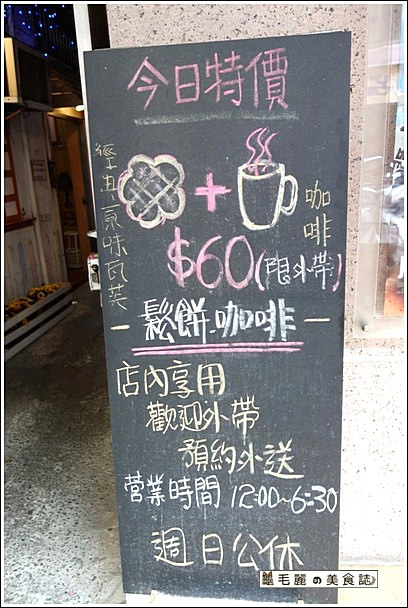 今日特價
經典原味瓦芙
+
咖啡
$60(限外帶)
鬆餅.咖啡
店內享用
歡迎外帶
預約外送
营業時間 12:00~6:30
週日公休
毛麗の美食誌